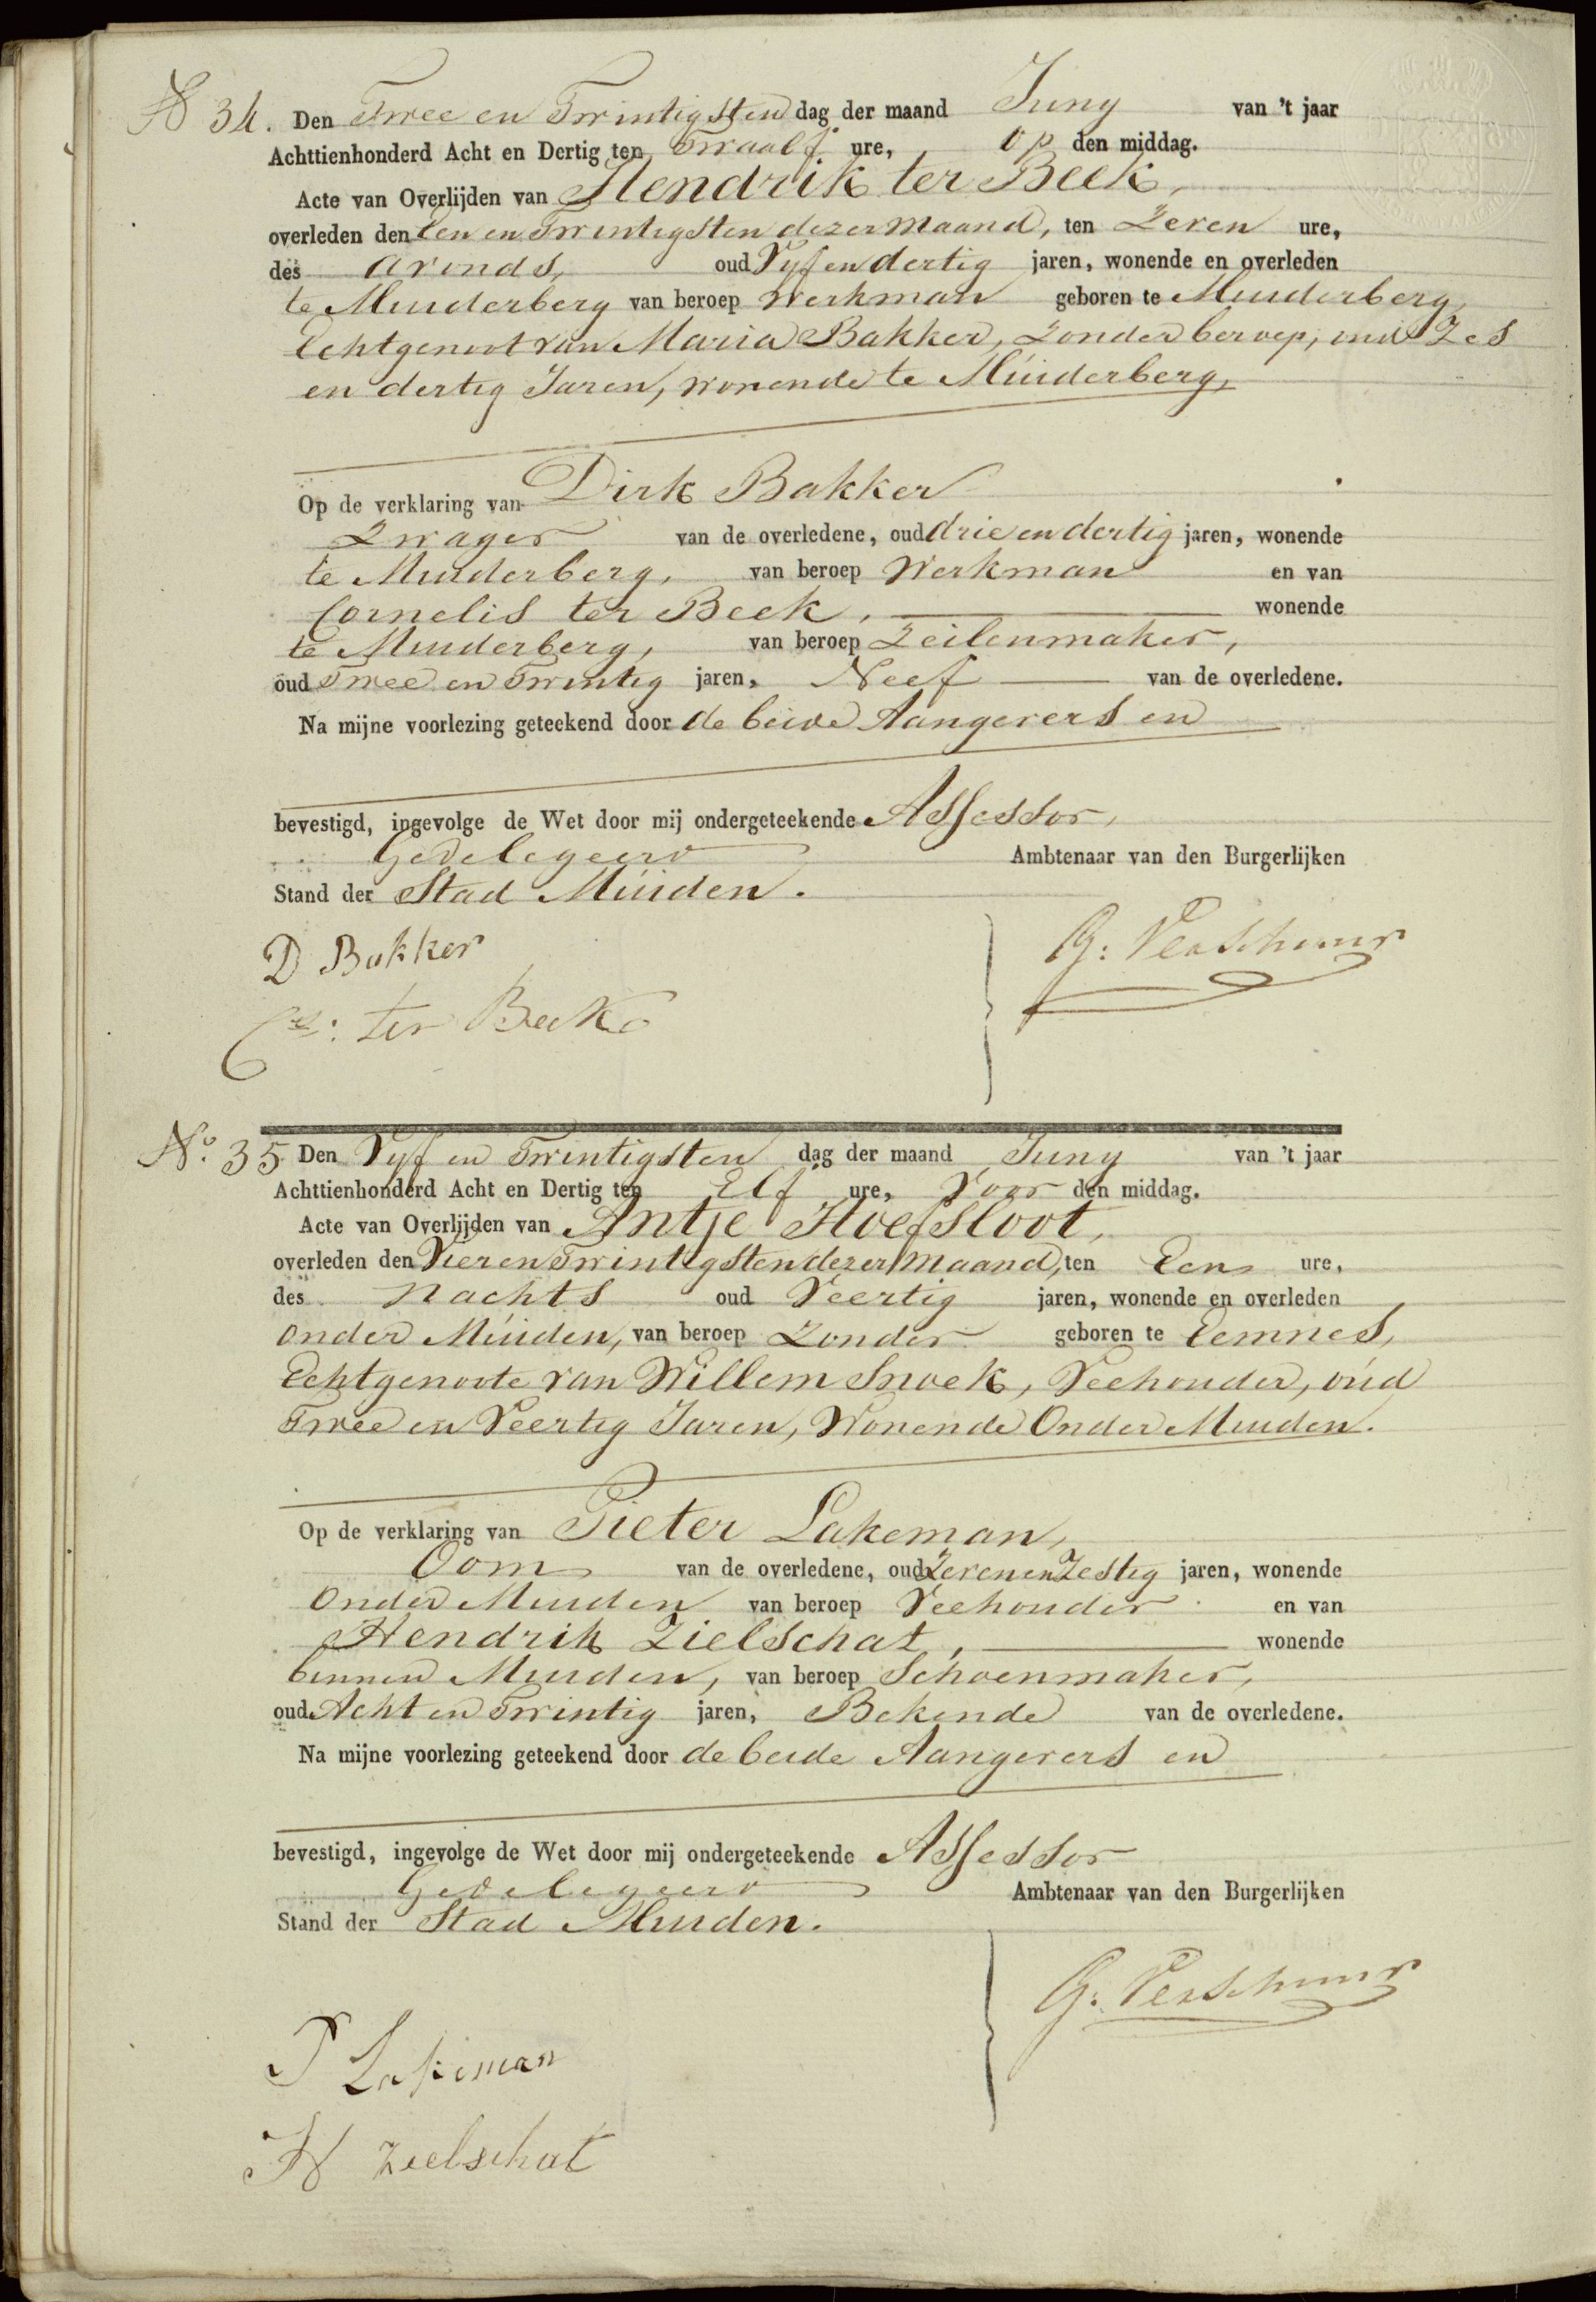 N 34. Den Twee en Twintigsten dag der maand Juny van 't jaar
Achttienhonderd Acht en Dertig ten Twaalf ure, op den middag.
Acte van Overlijden van Hendrik ter Beek,
overleden den Een en Twintigsten dezer Maand, ten Zeven ure,
des avonds, oud Vyf en dertig jaren, wonende en overleden
te Muiderberg van beroep Werkman geboren te Muiderberg,
Echtgenoot van Maria Bakker, Zonder beroep, oud Zes
en dertig Jaren, wonende te Muiderberg,
Op de verklaring van Dirk Bakker
Zwager van de overledene, oud drie en dertig jaren, wonende
te Muiderberg, van beroep Werkman en van
Cornelis ter Beek, wonende
te Muiderberg, van beroep Zeilenmaker,
oud Twee en Twintig jaren, Neef van de overledene.
Na mijne voorlezing geteekend door de beide Aangevers en
bevestigd, ingevolge de Wet door mij ondergeteekende Assessor,
Gedelegeerd Ambtenaar van den Burgerlijken
Stand der Stad Muiden.
D Bakker
G: Verschuur
Cs: ter Beek
No. 35 Den Vyf en Twintigsten dag der maand Juny van 't jaar
Achttienhonderd Acht en Dertig ten Elf ure, Voor den middag.
Acte van Overlijden van Antje Hoefsloot,
overleden den Vier en Twintigsten dezer Maand, ten Een ure,
des Nachts oud Veertig jaren, wonende en overleden
onder Muiden, van beroep Zonder geboren te Eemnes,
Echtgenoote van Willem Snoek, Veehouder, oud
Twee en Veertig Jaren, Wonende Onder Muiden.
Op de verklaring van Pieter Lakeman,
Oom van de overledene, oud Zeven en Zestig jaren, wonende
Onder Muiden van beroep Veehouder en van
Hendrik Zielschat, wonende
binnen Muiden, van beroep Schoenmaker,
oud Acht en Twintig jaren, Bekende van de overledene.
Na mijne voorlezing geteekend door de beide Aangevers en
bevestigd, ingevolge de Wet door mij ondergeteekende Assessor
Gedelegeerd Ambtenaar van den Burgerlijken
Stand der Stad Muiden.
G. Verschuur
P Lakeman
H Zielschat